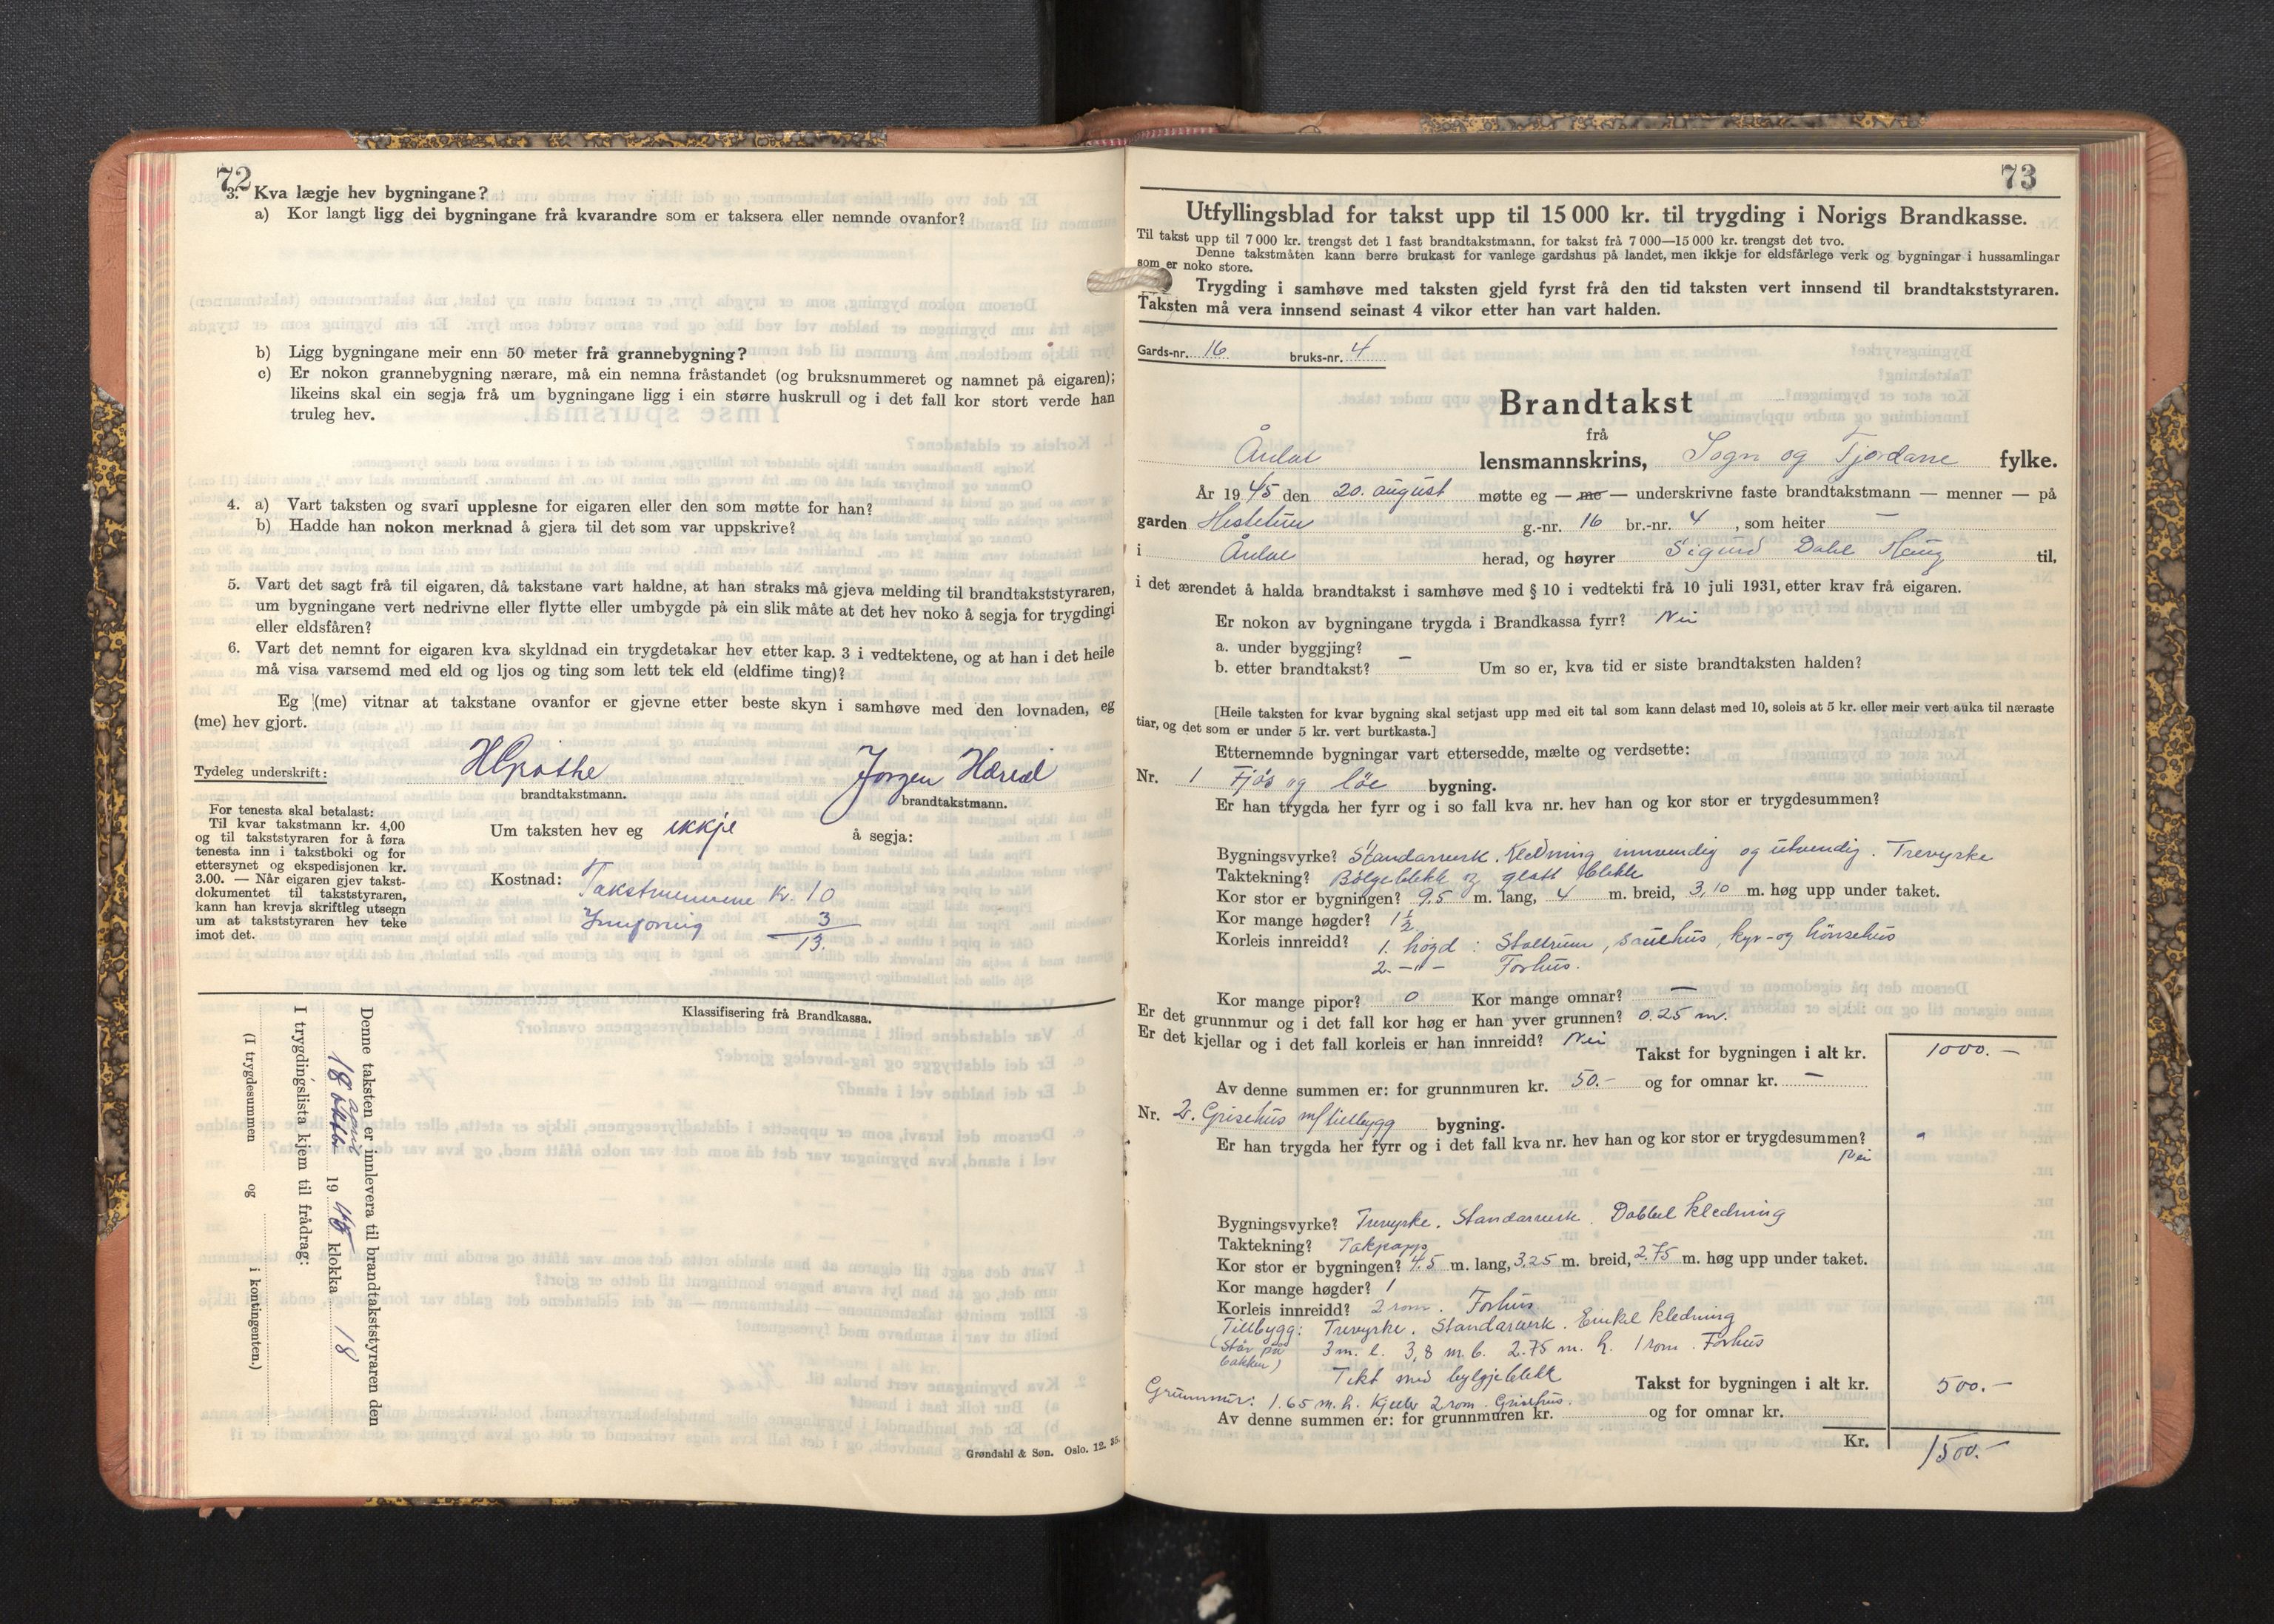 72
3. Kva lægje hev bygningane?
a) Kor langt ligg dei bygningane frå kvarandre som er taksera eller nemnde ovanfor?
b) Ligg bygningane meir enn 50 meter frå grannebygning?
c) Er nokon grannebygning nærare, må ein nemna fråstandet (og bruksnummeret og namnet på eigaren);
likeins skal ein segja frå um bygningane ligg i ein større huskrull og i det fall kor stort verde han
truleg hev.
4. a) Vart taksten og svari upplesne for eigaren eller den som møtte for han?
b) Hadde han nokon merknad å gjera til det som var uppskrive?
5. Vart det sagt frå til eigaren, då takstane vart haldne, at han straks må gjeva melding til brandtakststyraren,
um bygningane vert nedrivne eller flytte eller umbygde på ein slik måte at det hev noko å segja for trygdingi
eller eldsfåren?
6. Vart det nemnt for eigaren kva skyldnad ein trygdetakar hev etter kap. 3 i vedtektene, og at han i det heile
må visa varsemd med eld og ljos og ting som lett tek eld (eldfime ting)?
Eg (me) vitnar at takstane ovanfor er gjevne etter beste skyn i samhøve med den lovnaden, eg
(me) hev gjort.
Tydeleg underskrift: Jørgen
brandtakstmann. brandtakstmann.
For tenesta skal betalast:
Til kvar takstmann kr. 4,00
og til takststyraren for å føra
tenesta inn i takstboki og for
ettersynet og ekspedisjonen kr.
3.00. — Når eigaren gjev takst-
dokumentet til takststyraren,
kann han krevja skriftleg utsegn
um at takststyraren hev teke
imot det.
Um taksten hev eg ikkje å segja:
Kostnad: Takstmennene kr. 10
Innføring 3
13.
Klassifisering frå Brandkassa.
Denne taksten er innlevera til brandtakststyraren den
18 april 1945 klokka 18
I trygdingslista kjem til frådrag:
(I trygdesummen og i kontingenten.)
Grøndahl & Søn. Oslo. 12. 35.
73
Utfyllingsblad for takst upp til 15 000 kr. til trygding i Norigs Brandkasse.
Til takst upp til 7 000 kr. trengst det 1 fast brandtakstmann, for takst frå 7 000—15 000 kr. trengst det tvo.
Denne takstmåten kann berre brukast for vanlege gardshus på landet, men ikkje for eldsfårlege verk og bygningar i hussamlingar
som er noko store.
Trygding i samhøve med taksten gjeld fyrst frå den tid taksten vert innsend til brandtakststyraren.
Taksten må vera innsend seinast 4 vikor etter han vart halden.
Gards-nr. 16 bruks-nr. 4
Brandtakst
frå
Årdal lensmannskrins, Sogn og Fjordane fylke.
År 1945 den 20. august møtte eg — me — underskrivne faste brandtakstmann — menner — på
garden Hestetun g.-nr. 16 br.-nr. 4, som heiter —
i Årdal herad, og høyrer Sigurd Dahl Haug til,
i det ærendet å halda brandtakst i samhøve med § 10 i vedtekti frå 10 juli 1931, etter krav frå eigaren.
Er nokon av bygningane trygda i Brandkassa fyrr? Nei
a. under byggjing?
b. etter brandtakst? — Um so er, kva tid er siste brandtaksten halden?
[Heile taksten for kvar bygning skal setjast upp med eit tal som kann delast med 10, soleis at 5 kr. eller meir vert auka til næraste
tiar, og det som er under 5 kr. vert burtkasta.]
Etternemnde bygningar vart ettersedde, mælte og verdsette:
Nr. 1 Fjøs og løe bygning.
Er han trygda her fyrr og i so fall kva nr. hev han og kor stor er trygdesummen?
Bygningsvyrke? Standarverk. Kledning innvendig og utvendig. Trevyrke
Taktekning? Bølgeblekk og glatt blekk
Kor stor er bygningen? 9,5 m. lang, 4 m. breid, 3,10 m. høg upp under taket.
Kor mange høgder? 1½
Korleis innreidd? 1. høgd: Stallrum, sauehus, kyr- og hönsehus
2. –"– Forhus.
Kor mange pipor? 0 Kor mange omnar? —
Er det grunnmur og i det fall kor høg er han yver grunnen? 0.25 m.
Er det kjellar og i det fall korleis er han innreidd? Nei
Takst for bygningen i alt kr. 1000.—
Av denne summen er: for grunnmuren kr. 50.- og for omnar kr. —
Nr. 2. Grisehus m/ tilbygg bygning.
Er han trygda her fyrr og i det fall kva nr. hev han og kor stor er trygdesummen?
Nei
Bygningsvyrke? Trevyrke. Standarverk. Dobbel kledning
Taktekning? Takpapp
Kor stor er bygningen? 4.5 m. lang, 3,25 m. breid, 2.75 m. høg upp under taket.
Kor mange høgder? 1
Korleis innreidd? 2 rom. Forhus
Tilbygg: Trevyrke. Standarverk. Einkel kledning
(Står på 3 m. l. 3,8 m. b. 2.75 m. h. 1 rom. Forhus
bakken) Tekt med bylgjeblekk
Takst for bygningen i alt kr. 500.—
Grunnmur: 1.65 m. h. Kjellar 2 rom. Grisehus.
Av denne summen er: for grunnmuren kr. og for omnar kr.
Kr. 1500.—